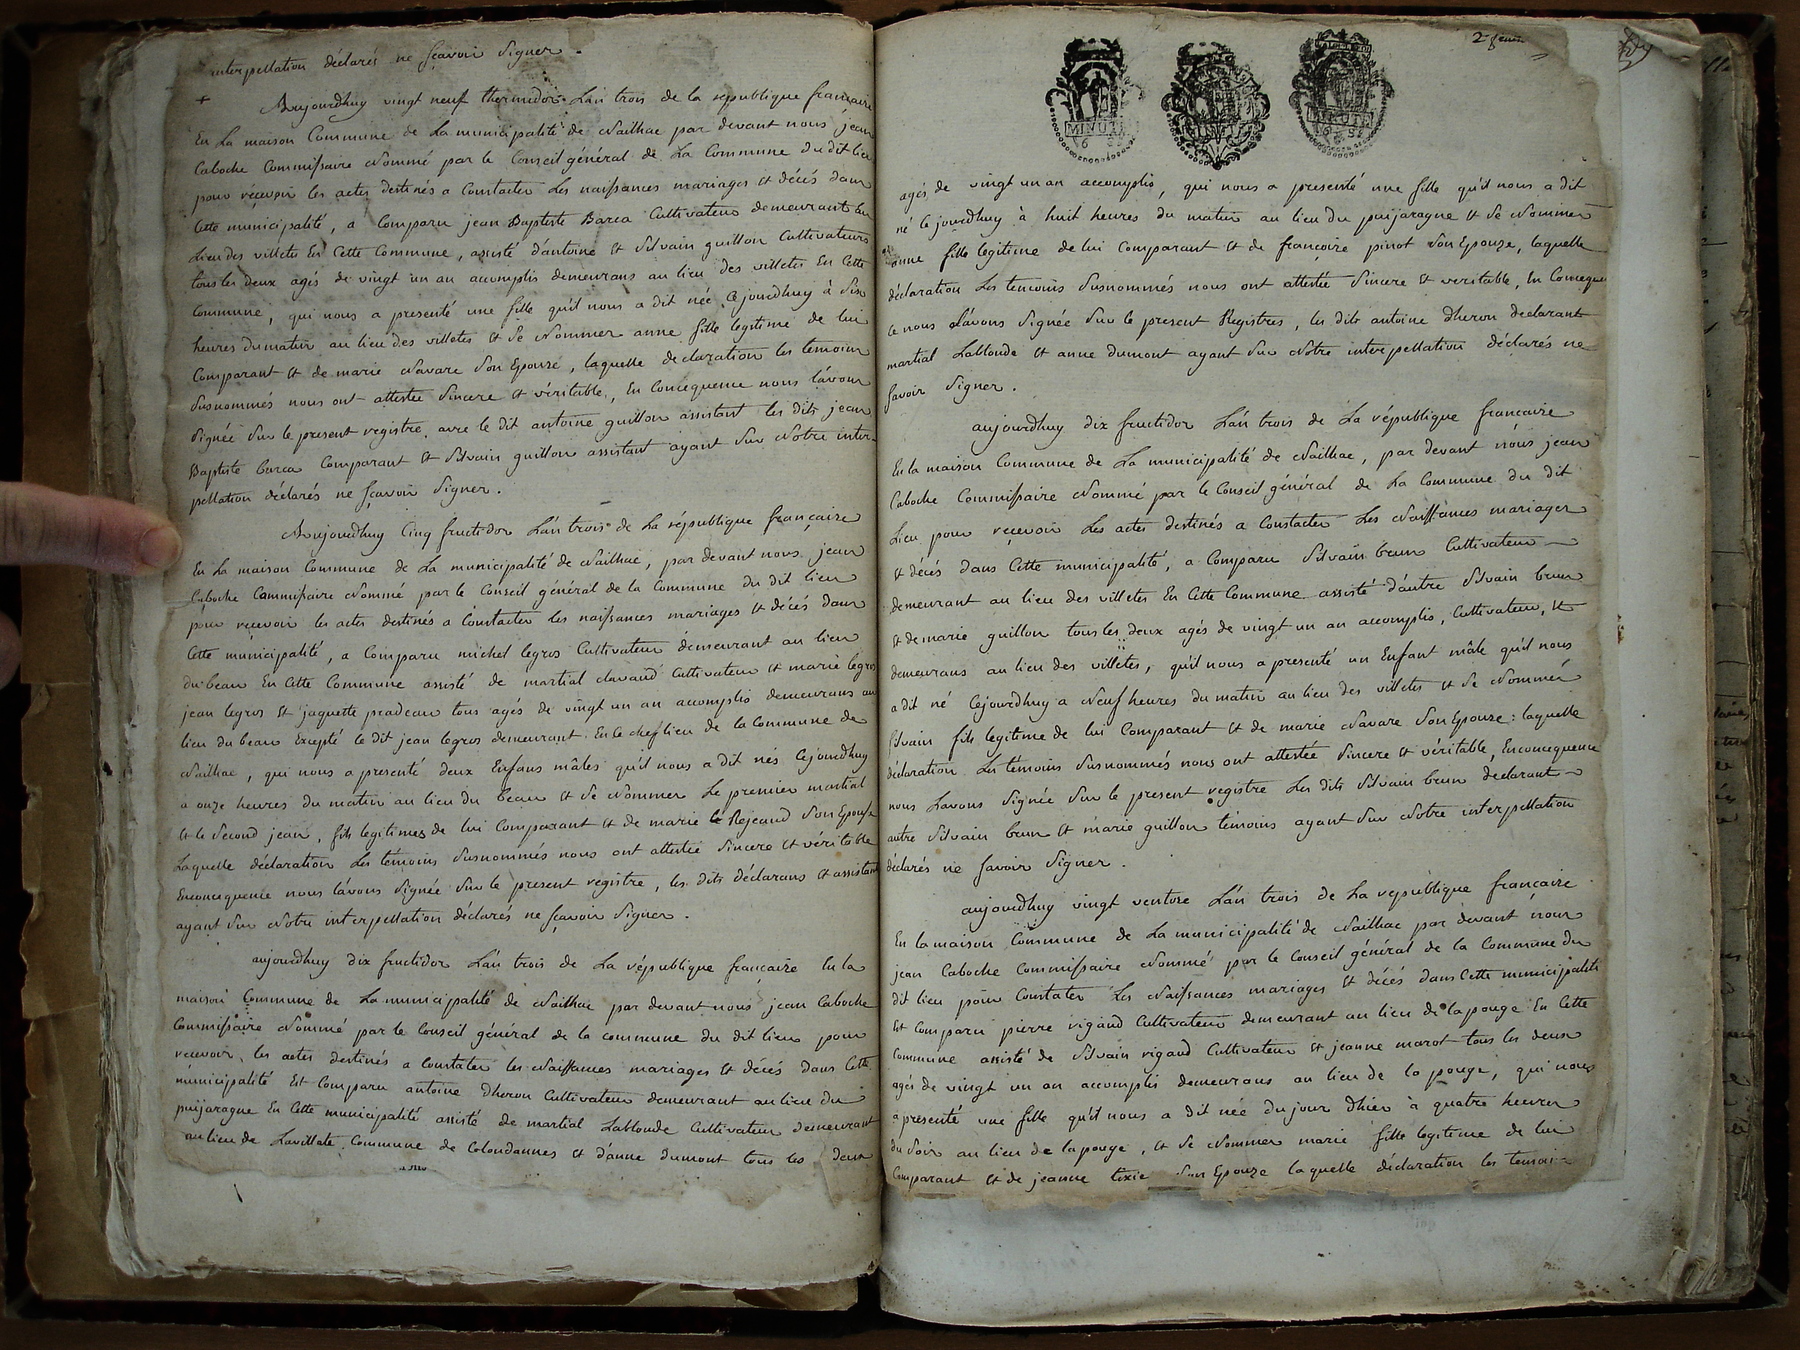 interpellation déclarés ne sçavoir signer.
Aujourdhuy vingt neuf thermidor L'an trois de la republique française
En La maison Commune de La municipalité de Naillac par devant nous jean
Caboche Commissaire Nommé par le Conseil général de La Commune du dit lieu
pour recevoir les actes destinés a Constater Les naissances mariages et décés dans
Cette municipalité, a Comparu jean Baptiste Barca Cultivateur demeurant au
Lieu des villetes En Cette Commune, assisté d'antoine et Silvain guillon Cultivateurs
tous les deux agés de vingt un an accomplis demeurans au lieu des villetes En Cette
Commune, qui nous a presenté une fille qu'il nous a dit née Cejourdhuy à six
heures du matin au lieu des villetes et se Nommer anne fille legitime de lui
Comparant et de marie Navare son Epouse, laquelle declaration les temoins
susnommés nous ont attestée sincere et véritable, En Concequence nous l'avons
signée sur le present registre avec le dit antoine guillon assistant les dits jean
Baptiste barca Comparant et Silvain guillon assistant ayant sur Notre inter-
pellation déclarés ne sçavoir signer.
Aujourdhuy Cinq fructidor L'an trois de La république française
En La maison Commune de La municipalité de Naillac, par devant nous jean
Caboche Commissaire Nommé par le Conseil général de la Commune du dit lieu
pour recevoir les actes destinés a Constater les naissances mariages et décés dans
Cette municipalité, a Comparu michel legros Cultivateur demeurant au lieu
du beau En Cette Commune assisté de martial clavaud Cultivateur et marie legros
jean legros et jaquette pradeau tous agés de vingt un an accomplis demeurans au
lieu du beau Excepté le dit jean legros demeurant En le cheflieu de la Commune de
Naillac, qui nous a presenté deux Enfans mâles qu'il nous a dit nés Cejourdhuy
a onze heures du matin au lieu du beau et se Nommer Le premier martial
et le second jean, fils legitimes de lui Comparant et de marie Rejeaud son Epouse
Laquelle déclaration Les témoins susnommés nous ont attestée sincere et véritable
Enconcequence nous l'avons signée sur le present registre, les dits déclarans et assistans
ayant sur Notre interpellation déclarés ne sçavoir signer.
aujourdhuy dix fructidor L'an trois de La république française En la
maison Commune de La municipalité de Naillac par devant nous jean Caboche
Commissaire Nommé par le Conseil général de la commune du dit lieu pour
recevoir les actes destinés a Constater les Naissances mariages et décés dans Cette
municipalité Est Comparu antoine dheron Cultivateur demeurant au lieu du
puijaragne En Cette municipalité assisté de martial Lablonde Cultivateur demeurant
au lieu de Lavillate Commune de Colondannes et d'anne dumont tous les deux
MINUTE
MINUTE
MINUTE
agés de vingt un an accomplis, qui nous a presenté une fille qu'il nous a dit
né Cejourdhuy à huit heures du matin au lieu du puijaragne et se Nommer
anne fille legitime de lui Comparant et de françoise pinot son Epouze, laquelle
déclaration Les temoins susnommés nous ont attestée sincere et veritable, En Conceque
ce nous L'avons signée sur le present Registres, les dits antoine dheron declarant
martial Lablonde et anne dumont ayant sur Notre interpellation déclarés ne
savoir signer.
aujourdhuy dix fructidor L'an trois de La république française
En la maison Commune de La municipalité de Naillac, par devant nous jean
Caboche Commissaire Nommé par le Conseil général de La Commune du dit
Lieu pour recevoir Les actes destinés a Constater Les Naissances mariages
et décés dans Cette municipalité, a Comparu Silvain brun Cultivateur
demeurant au lieu des villetes En Cette Commune assisté d'autre Silvain brun
et de marie guillon tous les deux agés de vingt un an accomplis, Cultivateur, et
demeurans au lieu des villetes, qu'il nous a presenté un Enfant mâle qu'il nous
a dit né Cejourdhuy a Neuf heures du matin au lieu des villetes et se Nommer
silvain fils legitime de lui Comparant et de marie Navare son Epouze: laquelle
déclaration Les témoins susnommés nous ont attestée sincere et véritable, Enconcequence
nous Lavons signée sur le present registre Les dits Silvain brun déclarant
autre Silvain brun et marie guillon témoins ayant sur Notre interpellation
déclarés ne savoir signer.
aujourdhuy vingt ventose L'an trois de La republique française
En la maison Commune de La municipalité de Naillac par devant nous
jean Caboche Commissaire Nommé par le Conseil général de la Commune du
dit lieu pour Constater Les Naissances mariages et décés dans Cette municipalité
Est Comparu pierre rigaud Cultivateur demeurant au lieu de lapouge En Cette
Commune assisté de Silvain rigaud Cultivateur et jeanne marot tous les deux
agés de vingt un an accomplis demeurans au lieu de la pouge, qui nous
a presenté une fille qu'il nous a dit née du jour d'hier à quatre heures
du soir au lieu de lapouge, et se Nommer marie fille legitime de lui
Comparant et de jeanne son Epouze laquelle déclaration les temoi-